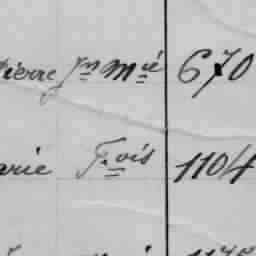 Pierre Jn Mié 670
arie F.ois 1104